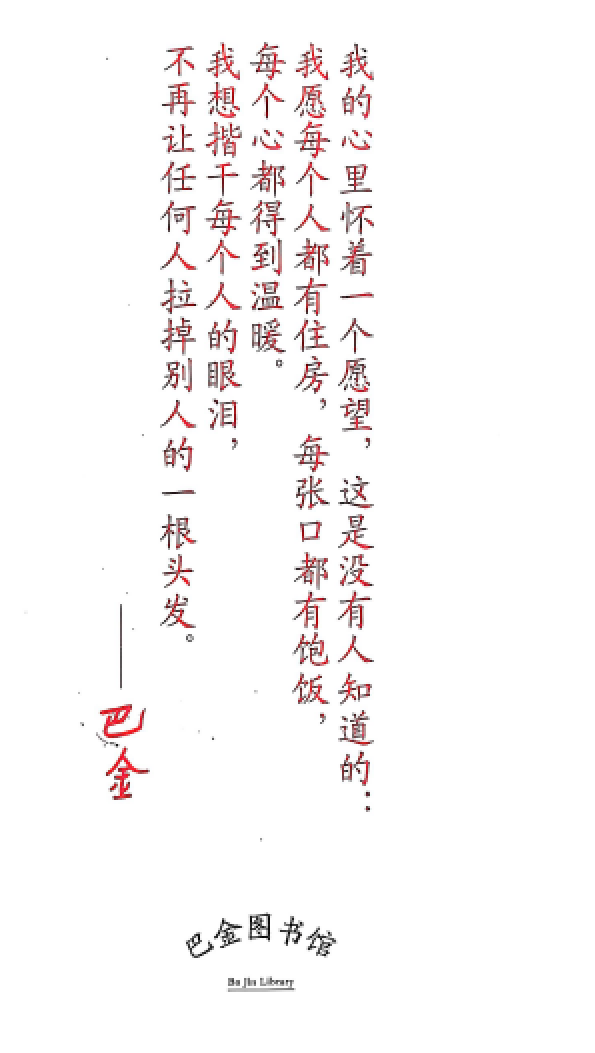 我的心里怀着一个愿望，这是没有人知道的：
我愿每个人都有住房，每张口都有饱饭，
每个心都得到温暖。
我想揩干每个人的眼泪，
不再让任何人拉掉别人的一根头发。
——巴金
巴金图书馆
Ba Jin Library